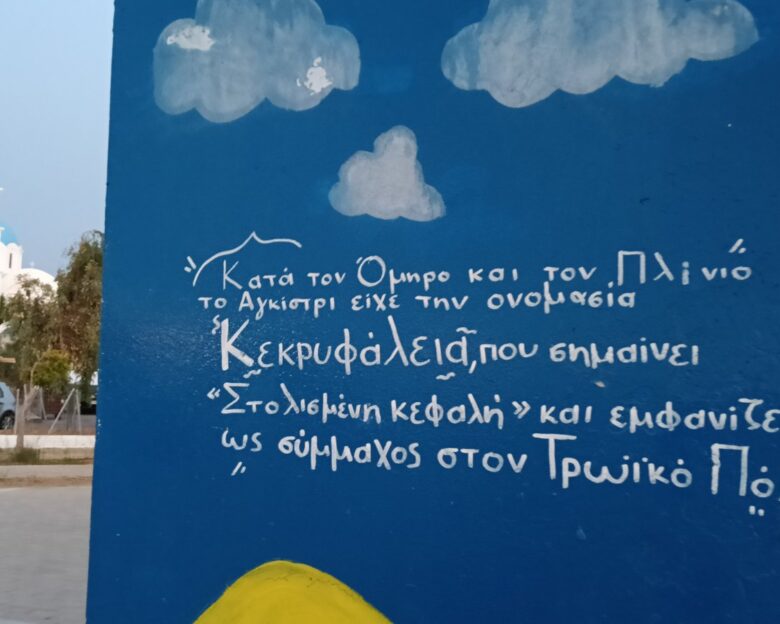 "Κατά τον Όμηρο και τον Πλίνιο"
το Αγκίστρι είχε την ονομασία
Κεκρυφάλεια, που σημαίνει
"Στολισμένη κεφαλή" και εμφανίζε
ως σύμμαχος στον Τρωϊκό Πό